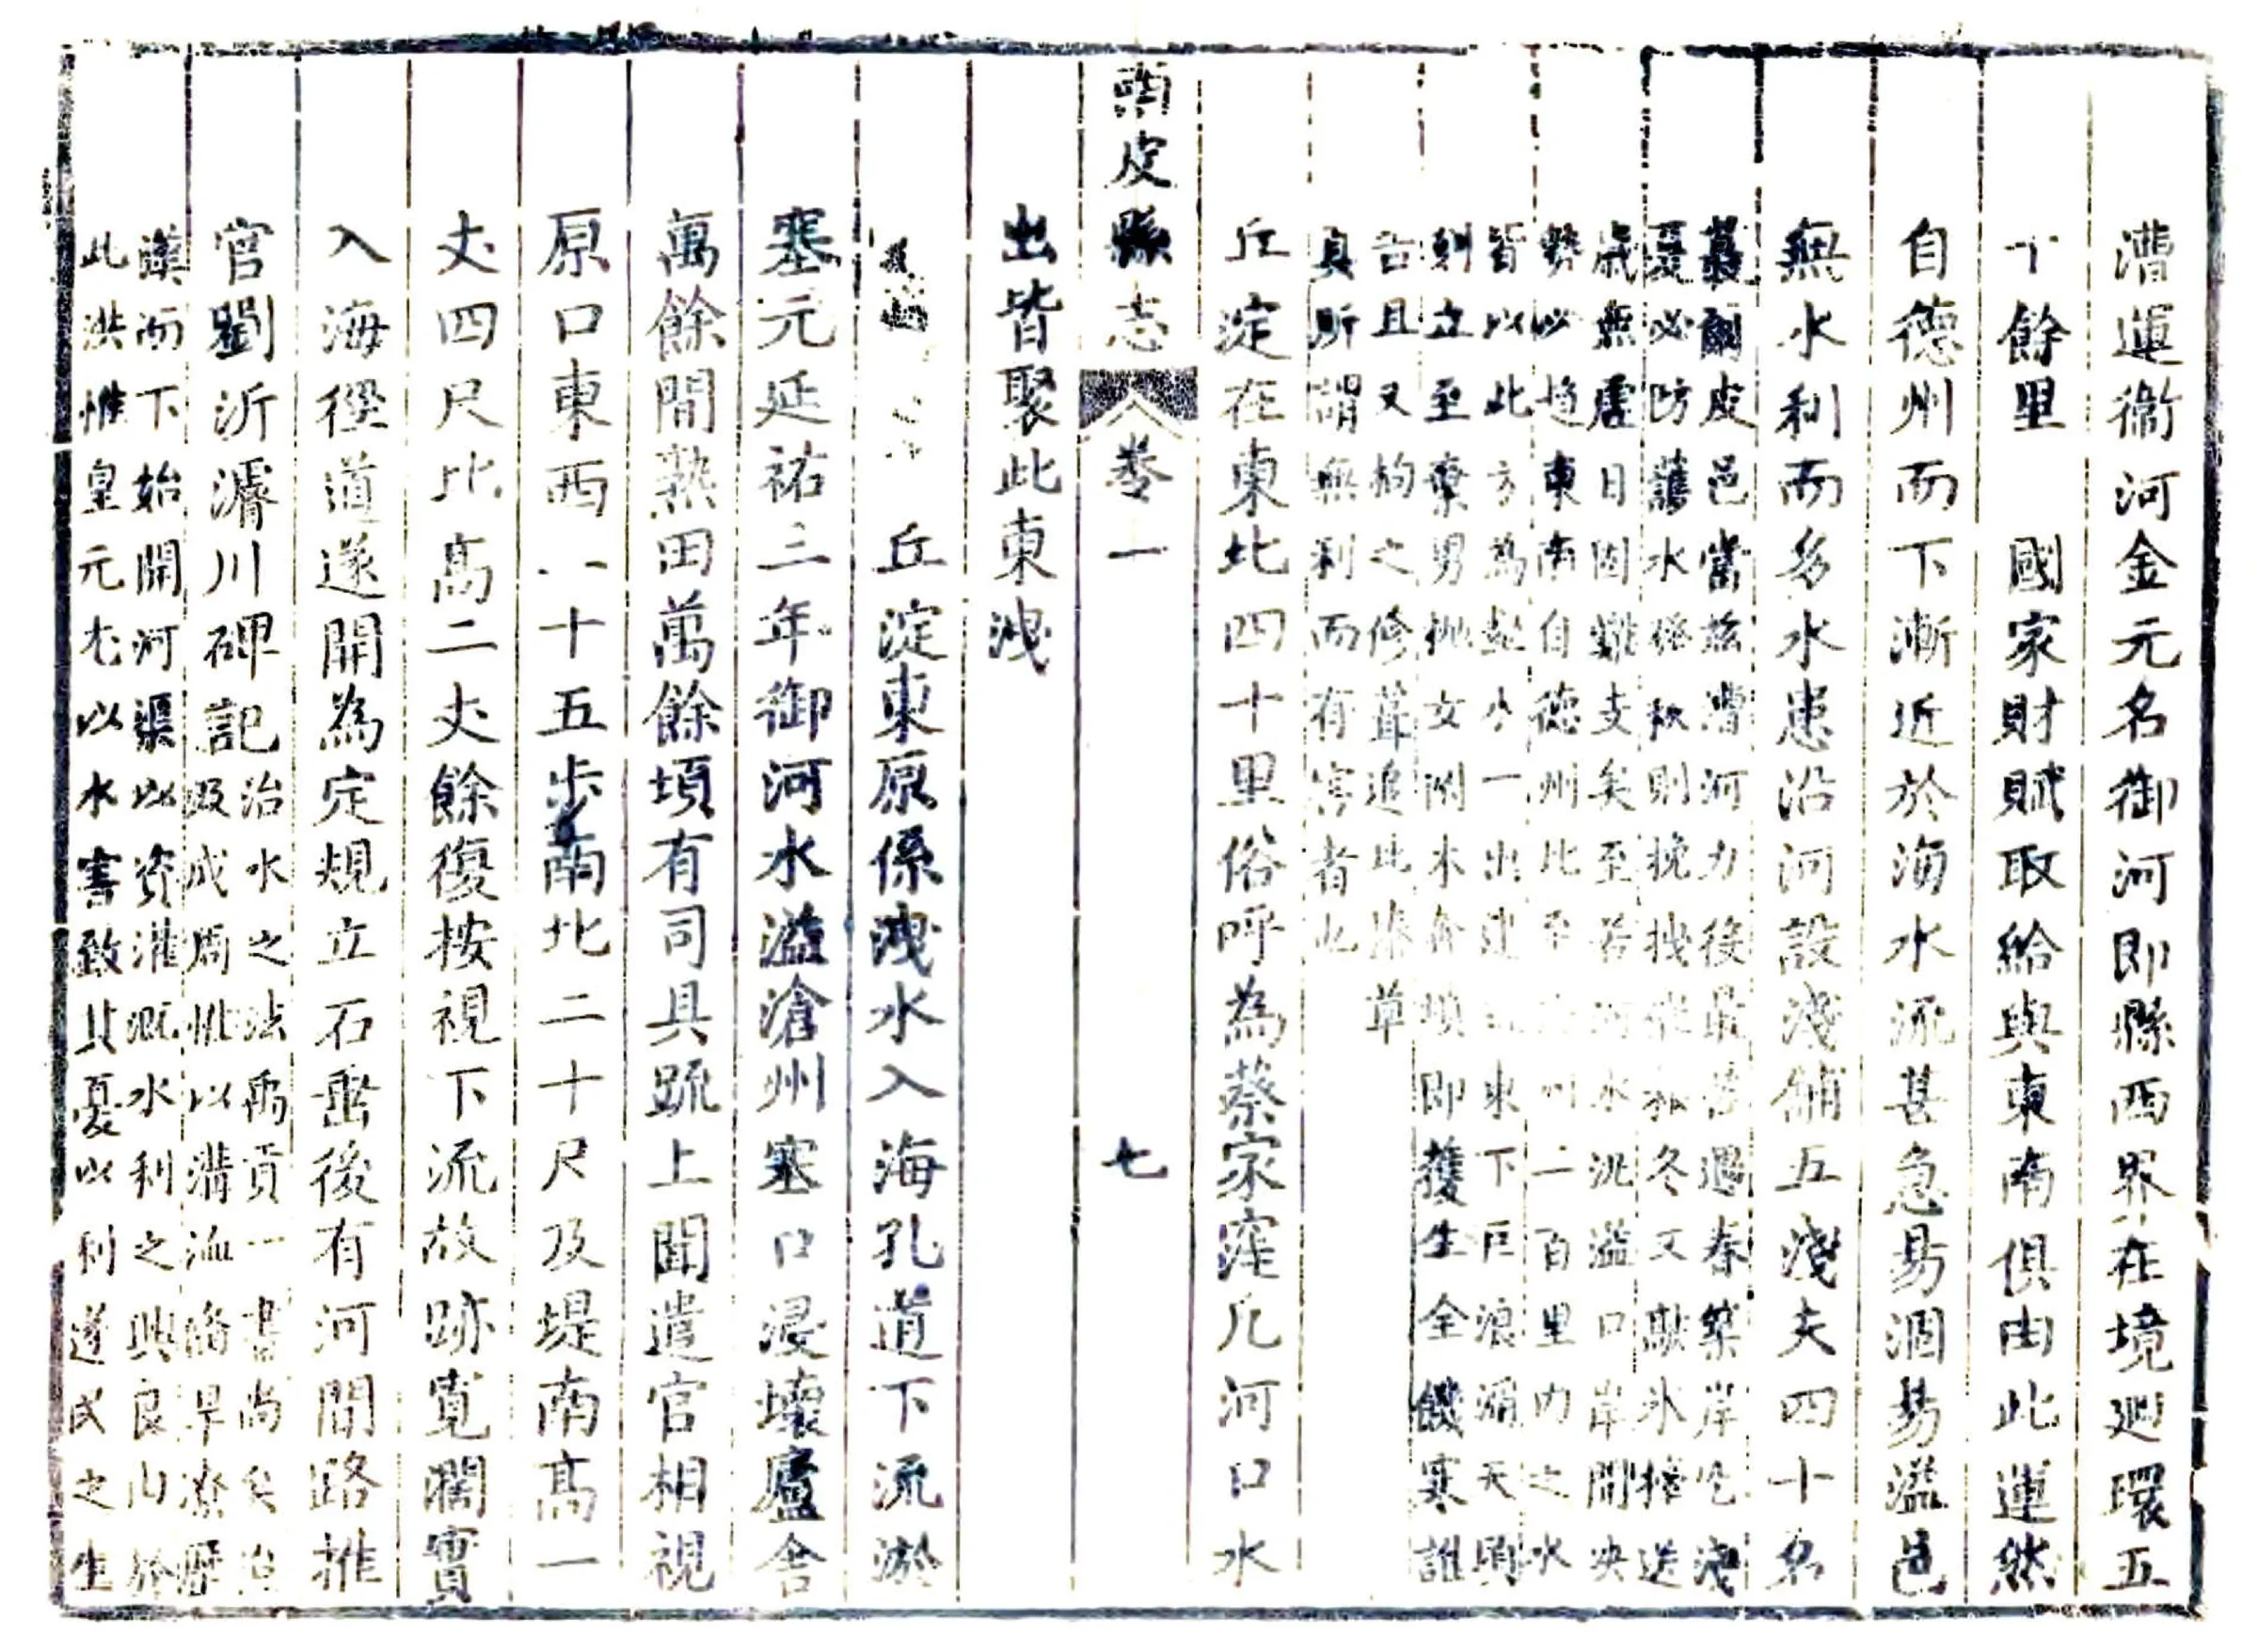 漕運衞河金元名御河即縣西界在境廻環五
十餘里　國家財賦取給與東南俱由此運然
自德州而下漸近於海水流甚急易涸易溢邑
無水利而多水患沿河設淺鋪五淺夫四十名
皮邑當 漕河力役最苦遇春築岸
憂必防 水 秋則挽拽 冬又 氷 送
歲無虛日固難支矣至若河水汎溢口岸開決
勢以趋東南自德州北至 州二百里內之水
皆以此方為壑少一出 東下巨浪滔天頃
刻立至棄男抛女附木奔 即獲生全饑寒誰
告且又拘之修葺追此 草
真所謂無利而有害者也
丘淀在東北四十里俗呼為蔡家窪凢河口水
南皮縣志　卷一　七
出皆聚此東洩
丘淀東原係洩水入海孔道下流淤
塞元延祐三年御河水溢滄州塞口浸壞廬舍
萬餘間熟田萬餘頃有司具疏上聞遣官相視
原口東西八十五步南北二十尺及堤南高一
丈四尺比高二丈餘復按視下流故跡寬濶實
入海徑道遂開為定規立石畨後有河間路推
官劉沂濬川碑記
治水之法禹貢一書尚矣
及成周 以溝洫 旱潦歷
漢而下始開河渠以資灌溉水利之興良 於
此洪惟皇元尤以水害致其憂以利遂民之生